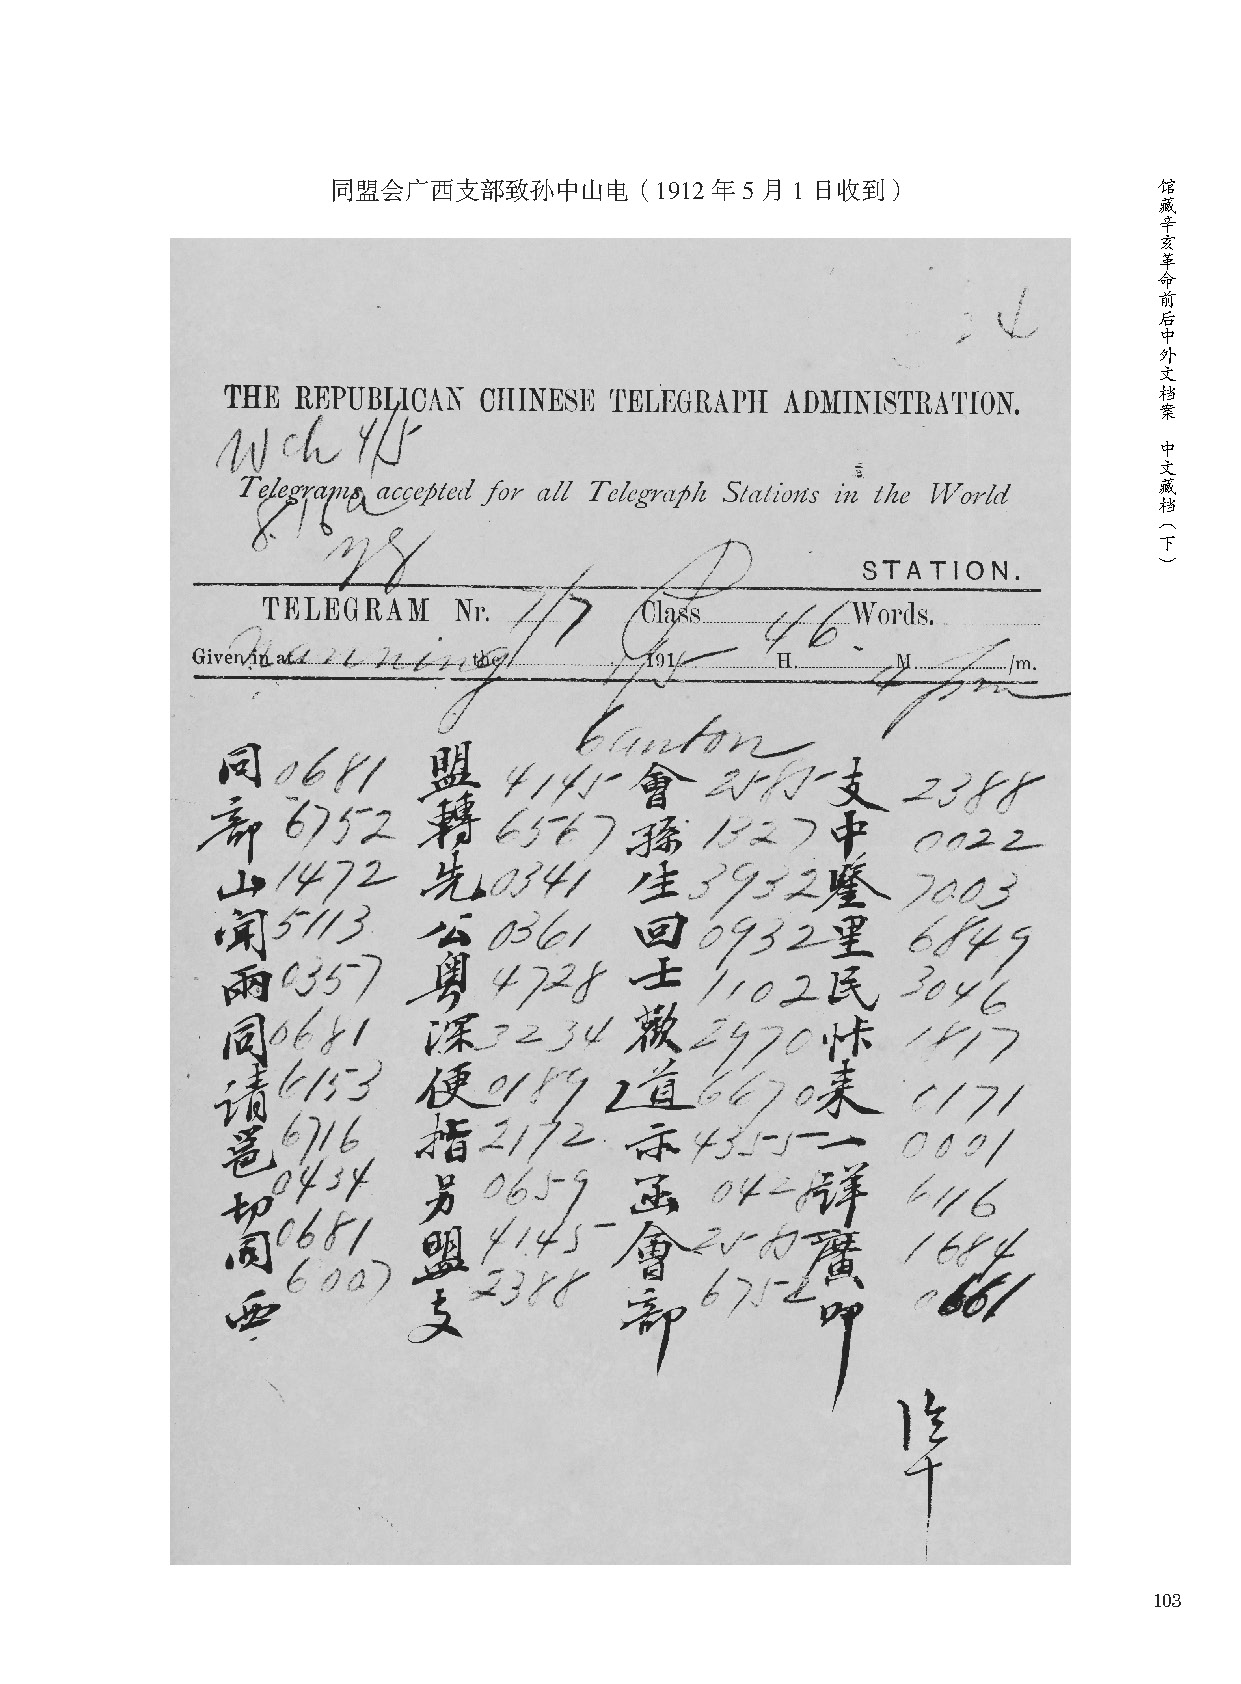 同盟会广西支部致孙中山电（1912 年 5 月 1 日收到）
24
THE REPUBLICAN CHINESE TELEGRAPH ADMINISTRATION.
Wch 4/5
Telegrams accepted for all Telegraph Stations in the World
STATION.
TELEGRAM Nr. 717 Class 46 Words.
Given in at Nanning the 1/5 191 H. M. 4 /m. pm
Canton
同 0681 盟 4145 會 2585 支 2388
部 6752 轉 6567 孫 1327 中 0022
山 1472 先 0341 生 3932 鑒 7003
闻 5113 公 0361 回 0932 里 6849
兩 0357 粵 4728 士 1102 民 3046
同 0681 深 3234 歡 2970 忭 1817
请 6153 便 0189 道 6670 来 6171
邕 6716 指 2172 示 4355 一 0001
切 0434 另 0659 函 0428 详 6116
同 0681 盟 4145 會 2585 廣 1684
西 6007 支 2388 部 6752 叩 0661
馆藏辛亥革命前后中外文档案 中文藏档（下）
103